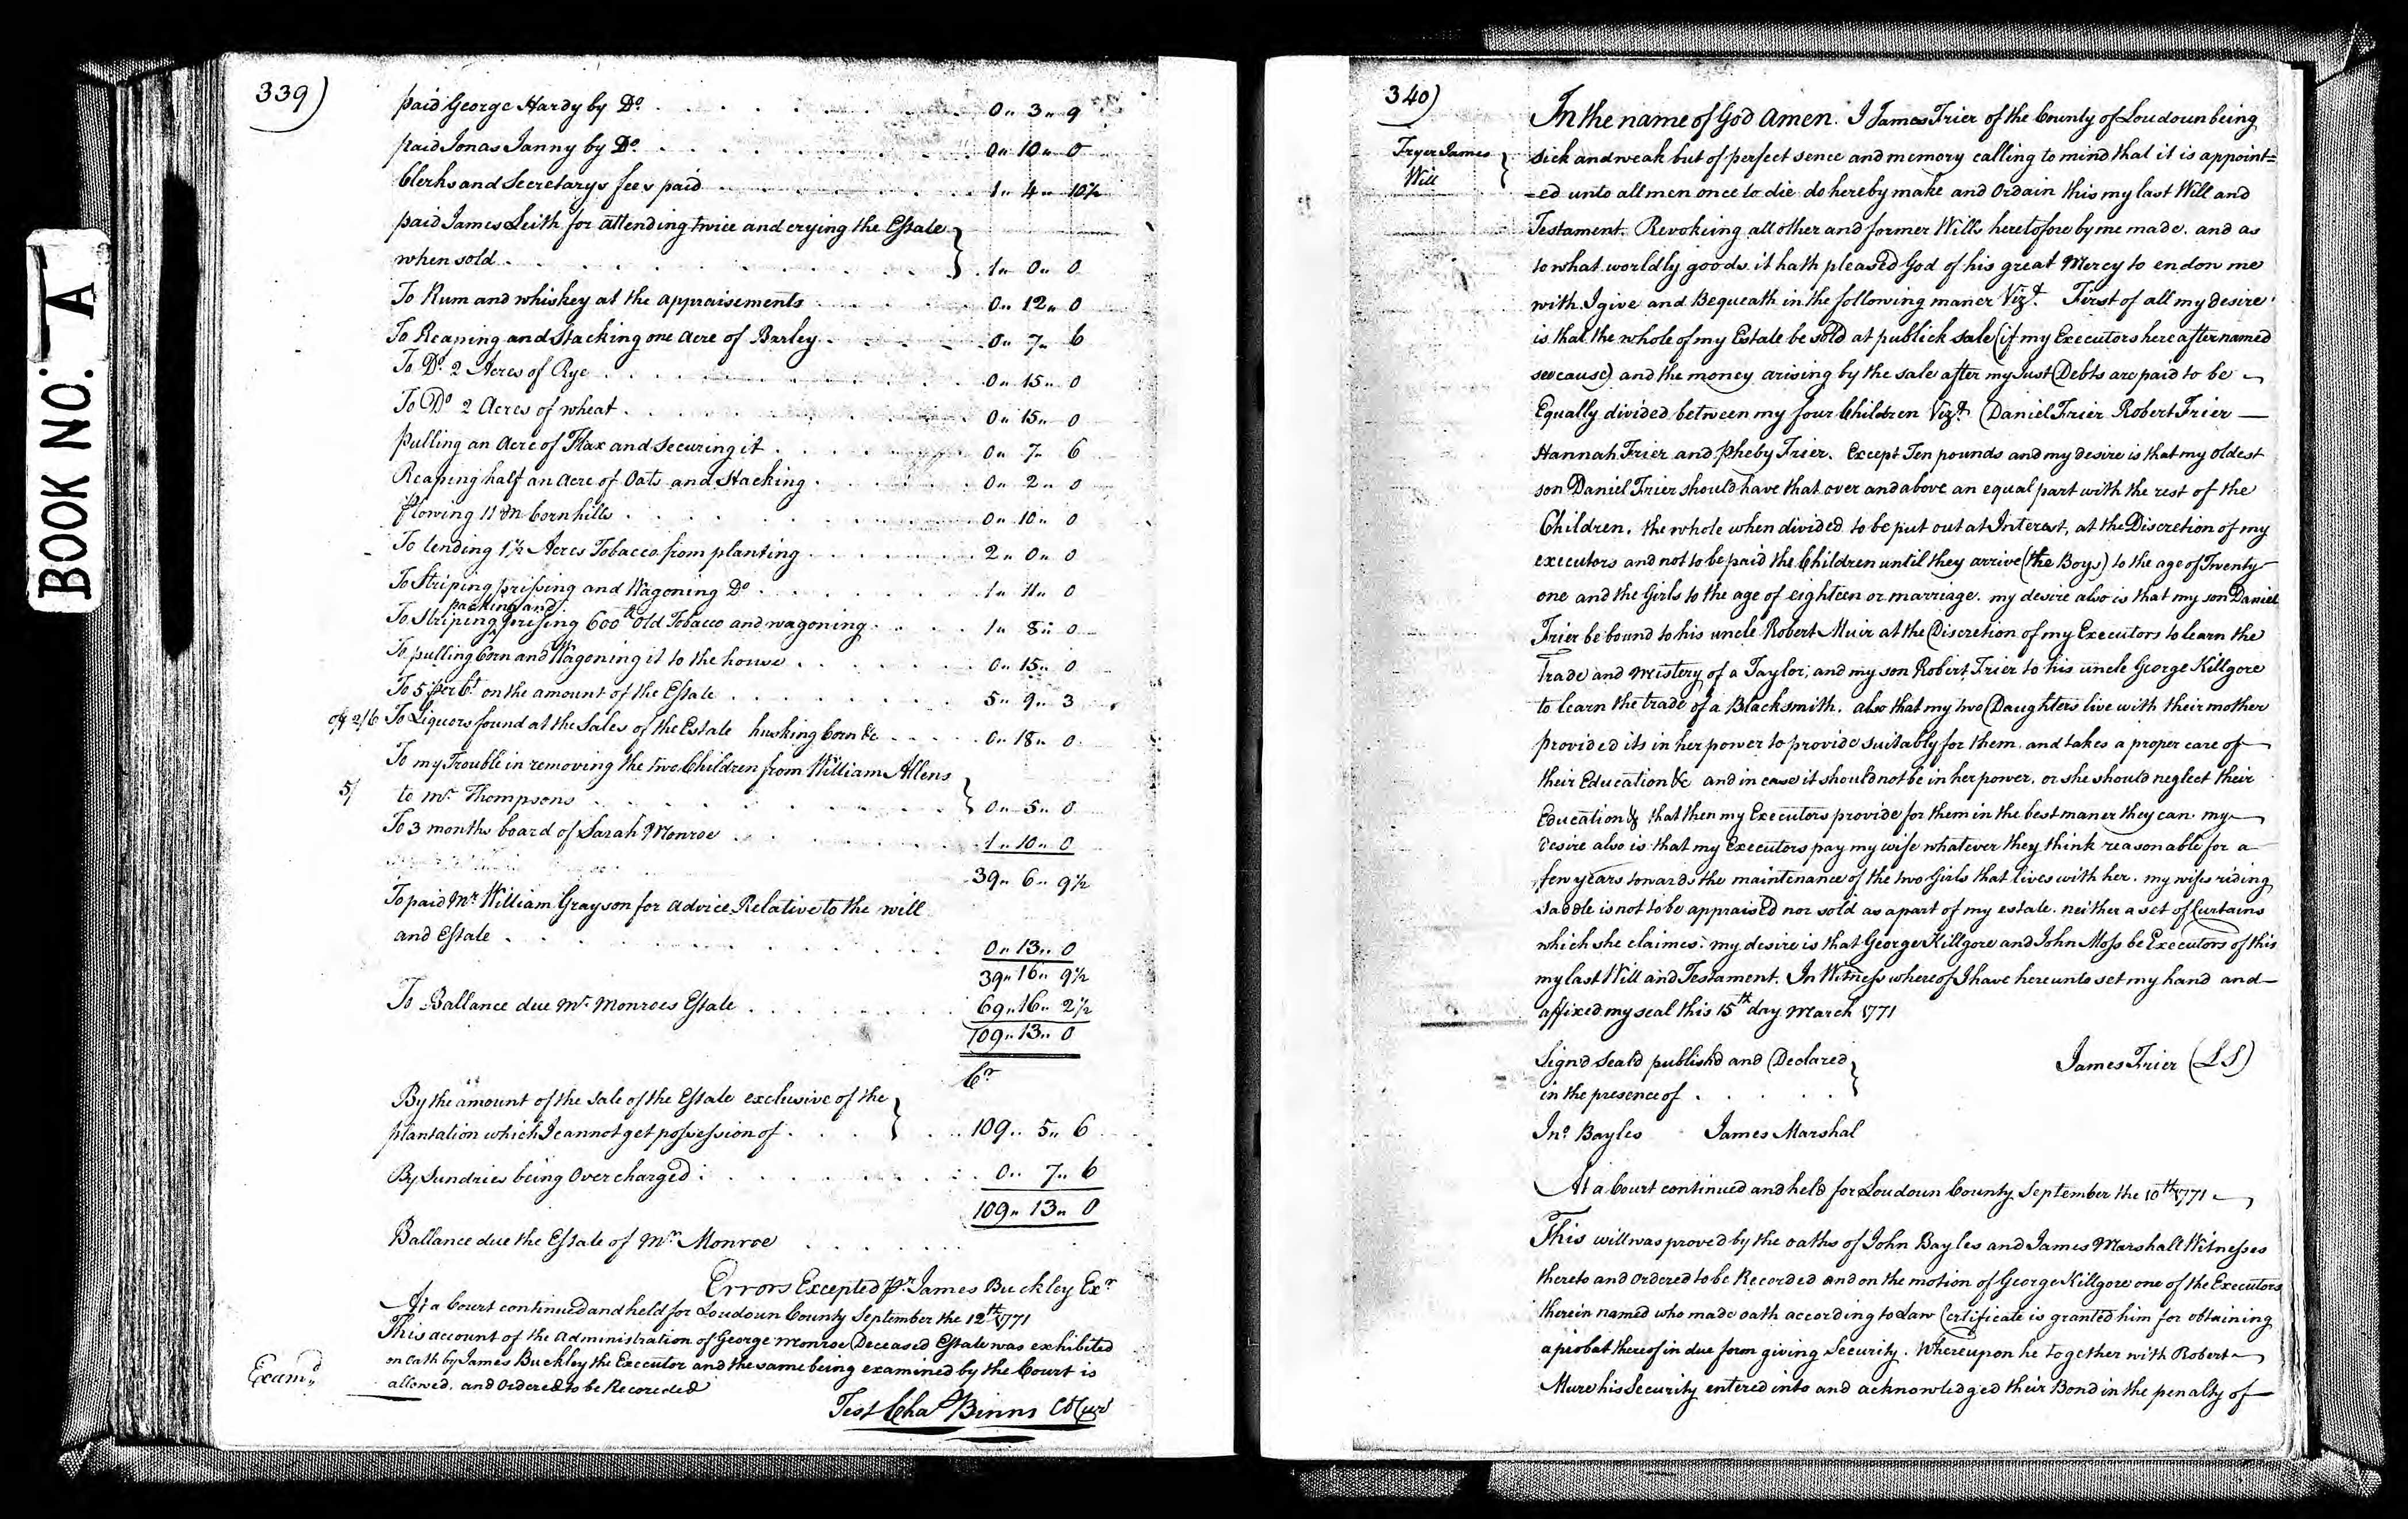 BOOK NO. A
339)
paid George Hardy by Do. 0 .. 3 .. 9
paid Jonas Janny by Do. 0 .. 10 .. 0
Clerks and Secretarys fees paid 1 .. 4 .. 10½
paid James Leith for attending twice and crying the Estate
when sold 1 .. 0 .. 0
To Rum and whiskey at the appraisements 0 .. 12 .. 0
To Reaping and Stacking one Acre of Barley 0 .. 7 .. 6
To Do. 2 Acres of Rye 0 .. 15 .. 0
To Do 2 Acres of wheat 0 .. 15 .. 0
pulling an Acre of Flax and Securing it 0 .. 7 .. 6
Reaping half an Acre of Oats and Stacking 0 .. 2 .. 0
plowing 11 M Cornhills 0 .. 10 .. 0
To tending 1½ Acres Tobacco from planting 2 .. 0 .. 0
To Striping prissing and Wagoning Do 1 .. 11 .. 0
packing and
To Striping ^ prising 600 lb old Tobacco and wagoning 1 .. 8 .. 0
To pulling Corn and Wagoning it to the house 0 .. 15 .. 0
To 5 per Ct. on the amount of the Estate 5 .. 9 .. 3
of 2/6 To Liquors found at the Sales of the Estate husking Corn &c 0 .. 18 .. 0
To my Trouble in removing the two Children from William Allens
5/ to Mr. Thompsons 0 .. 5 .. 0
To 3 months board of Sarah Monroe 1 .. 10 .. 0
39 .. 6 .. 9½
To paid Mr. William Grayson for advice Relative to the will
and Estate 0 .. 13 .. 0
39 .. 16 .. 9½
To Ballance due Mr. Monroes Estate 69 .. 16 .. 2½
109 .. 13 .. 0
Cr
By the amount of the Sale of the Estate exclusive of the
plantation which I cannot get possession of 109 .. 5 .. 6
By Sundries being Overcharged 0 .. 7 .. 6
109 .. 13 .. 0
Ballance due the Estate of Mr. Monroe
Errors Excepted pr. James Buckley Exr
At a Court continued and held for Loudoun County September the 12th 1771
This account of the Administration of George Monroe Deceased Estate was exhibited
on oath by James Buckley the Executor and the same being examined by the Court is
Examd allowed. and Ordered to be Recoreded
Test Chas Binns Cl Cur
340)
Fryer James
Will
In the name of God Amen. I James Frier of the County of Loudoun being
sick and weak but of perfect sence and memory calling to mind that it is appoint=
=ed unto all men once to die do hereby make and Ordain this my last Will and
Testament. Revokeing all other and former Wills heretofore by me made. and as
to what worldly goods it hath pleased God of his great Mercy to endow me
with I give and Bequeath in the following maner Vizt. First of all my desire
is that the whole of my Estate be sold at publick sale (if my Executors here after named
see cause) and the money arising by the sale after my Just Debts are paid to be
Equally divided between my four Children Vizt. Daniel Frier Robert Frier
Hannah Frier and Pheby Frier. Except Ten pounds and my desire is that my oldest
son Daniel Frier should have that over and above an equal part with the rest of the
Children. the whole when divided to be put out at Interest, at the Discretion of my
executors and not to be paid the Children until they arrive (the Boys) to the age of Twenty
one and the Girls to the age of eighteen or marriage. my desire also is that my son Daniel
Frier be bound to his uncle Robert Muir at the Discretion of my Executors to learn the
Trade and Mistery of a Taylor, and my son Robert Frier to his uncle George Killgore
to learn the trade of a Blacksmith. also that my two Daughters live with their mother
provided its in her power to provide suitably for them. and takes a proper care of
their Education &c and in case it should not be in her power. or she should neglect their
Education & that then my Executors provide for them in the best maner they can. my
desire also is that my Executors pay my wife whatever they think reasonable for a
few years towards the maintenance of the two Girls that lives with her. my wifes riding
saddle is not to be appraised nor sold as apart of my estate. neither a set of Curtains
which she claimes: my desire is that George Killgore and John Moss be Executors of this
my last Will and Testament. In Witness whereof I have hereunto set my hand and
affixed my seal this 15th day March 1771
Signd Seald publishd and Declared James Frier (LS)
in the presence of
Jno Bayles James Marshal
At a Court continued and held for Loudoun County September the 10th 1771
This will was proved by the oaths of John Bayles and James Marshall Witnesses
thereto and Ordered to be Recorded and on the motion of George Killgore one of the Executors
therein named who made oath according to Law Certificate is granted him for obtaining
a probat thereof in due form giving Security. Whereupon he together with Robert
Mure his Security entered into and acknowledged their Bond in the penalty of